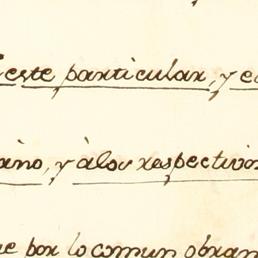 este particular, y e
ano, y àlos respectivos
e por lo comun obran